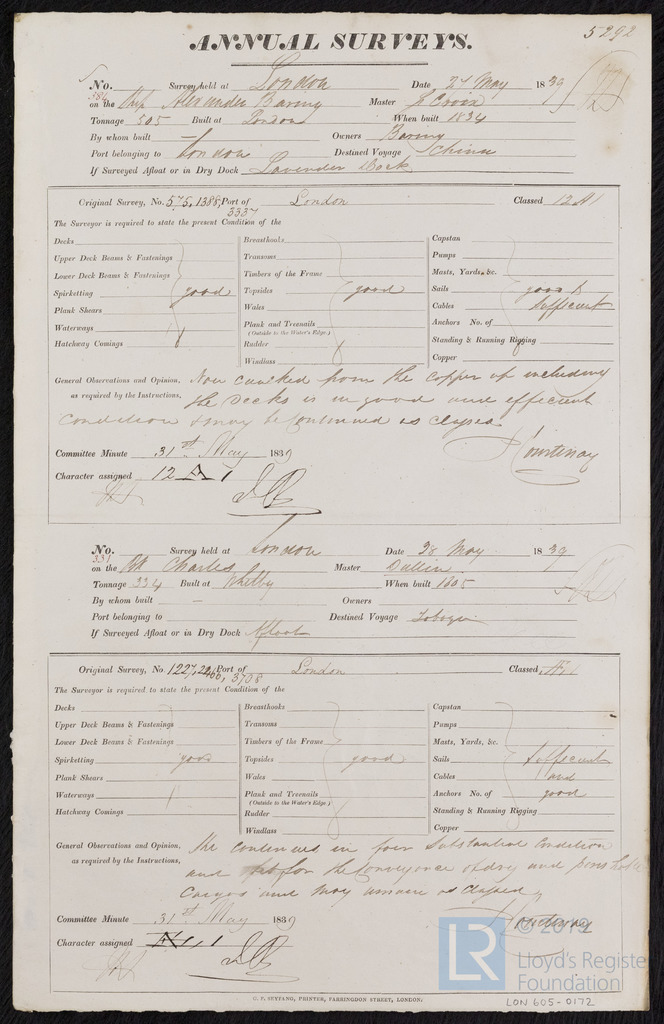 5292
ANNUAL SURVEYS.
No. Survey held at London Date 27 May 1839
on the Ship Alexander Baring Master St Croix
Tonnage 505 Built at London When built 1834
By whom built — Owners Baring
Port belonging to London Destined Voyage China
If Surveyed Afloat or in Dry Dock Lavender Dock
Original Survey, No. 575, 1388, Port of London Classed 12 A 1
3337
The Surveyor is required to state the present Condition of the
Decks Breasthooks Capstan
Upper Deck Beams & Fastenings Transoms Pumps
Lower Deck Beams & Fastenings Timbers of the Frame Masts, Yards, &c.
Spirketting good Topsides good Sails good &
Plank Shears Wales Cables sufficient
Waterways Plank and Treenails Anchors No. of
(Outside to the Water's Edge.)
Hatchway Comings Rudder Standing & Running Rigging
Windlass Copper
General Observations and Opinion, Now caulked from the copper up including
as required by the Instructions, the Decks is in good and efficient
condition & may be Continued as Classed
Courtenay
Committee Minute 31st May 1839
Character assigned 12 A 1
No. Survey held at London Date 28 May 1839
331
on the Bk Charles Master
Tonnage 334 Built at Whitby When built 1805
By whom built — Owners
Port belonging to Destined Voyage Tobago
If Surveyed Afloat or in Dry Dock Afloat
Original Survey, No. 1227, Port of London Classed Æ 1
3708
The Surveyor is required to state the present Condition of the
Decks Breasthooks Capstan
Upper Deck Beams & Fastenings Transoms Pumps
Lower Deck Beams & Fastenings Timbers of the Frame Masts, Yards, &c.
Spirketting good Topsides good Sails sufficient
Plank Shears Wales Cables and
Waterways Plank and Treenails Anchors No. of good
(Outside to the Water's Edge.)
Hatchway Comings Rudder Standing & Running Rigging
Windlass Copper
General Observations and Opinion, She continues in fair Substantial Condition
as required by the Instructions, and fit for the Conveyance of dry and perishable
Cargos and may remain as Classed
Courtenay
Committee Minute 31st May 1839
Character assigned Æ 1
© 2019
LR
Lloyd's Register
Foundation
G. F. SEYFANG, PRINTER, FARRINGDON STREET, LONDON.
LON 605-0172